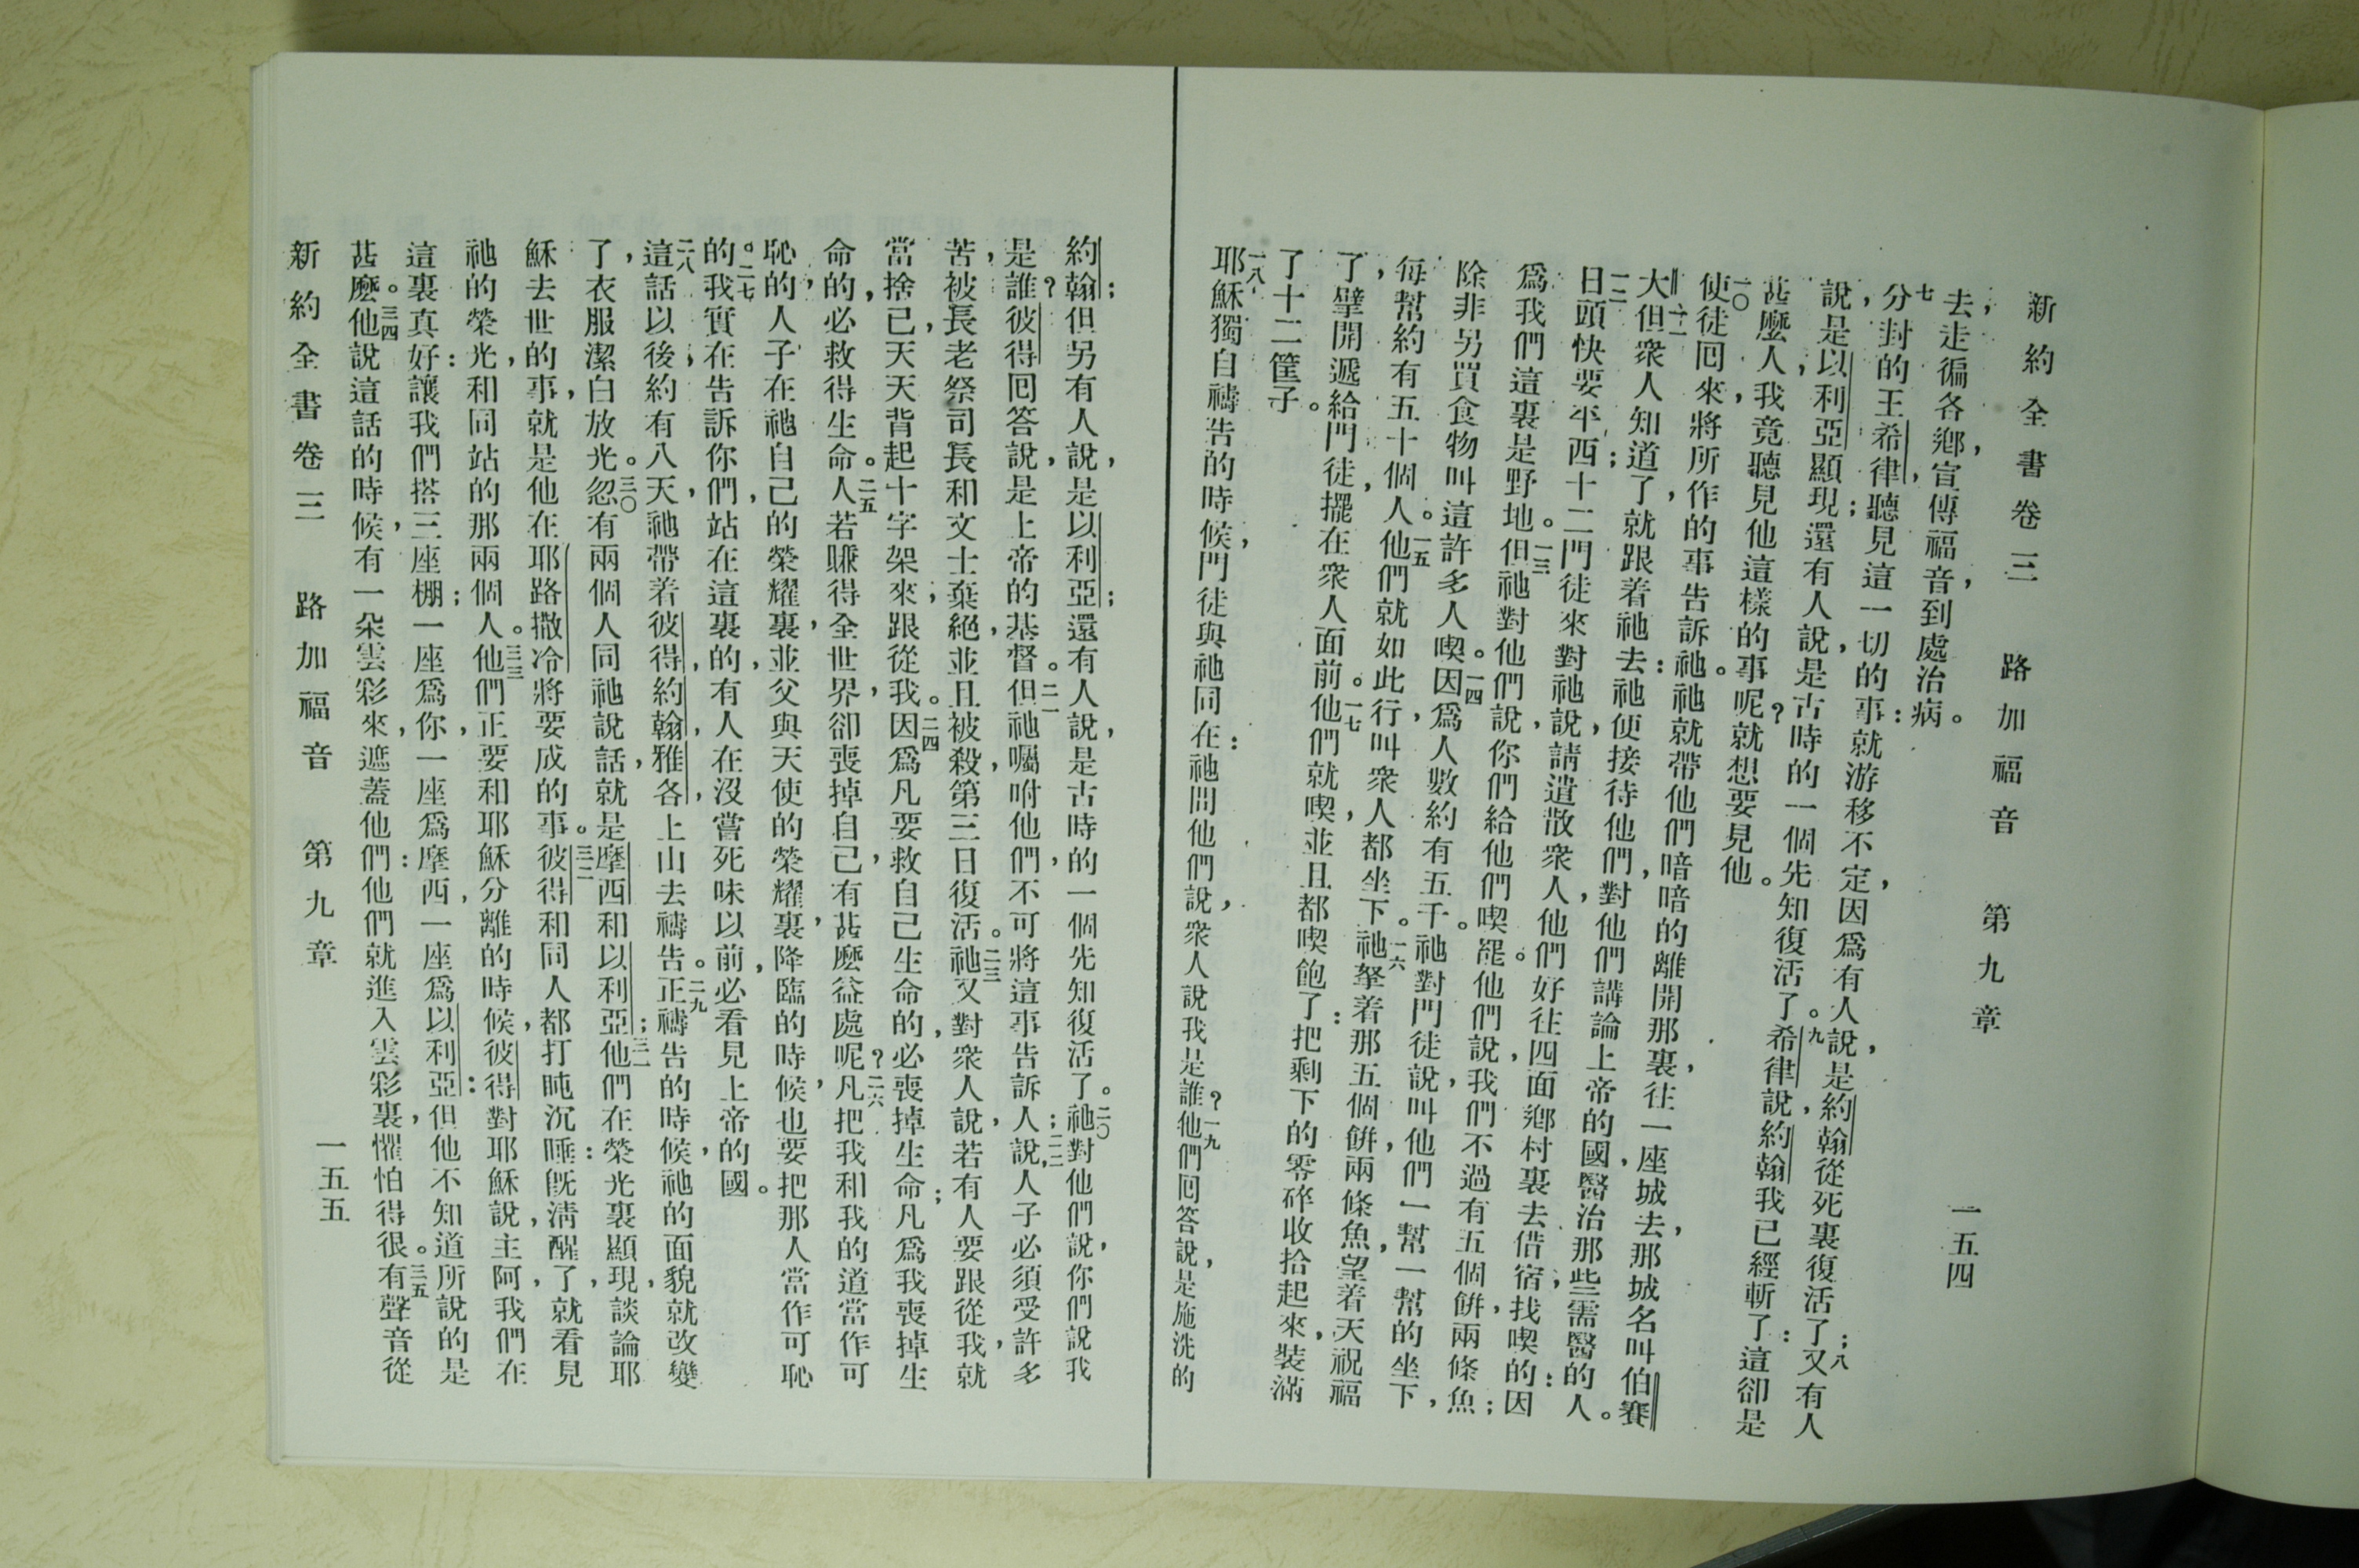 新約全書卷三　路加福音　第九章　一五四
去，走徧各鄉，宣傳福音，到處治病。
七分封的王希律，聽見這一切的事：就游移不定，因爲有人說，是約翰從死裏復活了；八又有人
說，是以利亞顯現；還有人說，是古時的一個先知復活了。九希律說，約翰我已經斬了：這卻是
甚麼人，我竟聽見他這樣的事呢？就想要見他。
一〇使徒囘來，將所作的事告訴祂。祂就帶他們暗暗的離開那裏，往一座城去，那城名叫伯賽
大一一但衆人知道了，就跟着祂去：祂便接待他們，對他們講論上帝的國，醫治那些需醫的人。
一二日頭快要平西；十二門徒來對祂說，請遣散衆人，他們好往四面鄉村裏去借宿，找喫的：因
爲我們這裏是野地。一三但祂對他們說，你們給他們喫罷。他們說，我們不過有五個餅，兩條魚；
除非另買食物叫這許多人喫。一四因爲人數約有五千。祂對門徒說，叫他們一幫一幫的坐下，
每幫約有五十個人。一五他們就如此行，叫衆人都坐下。一六祂拏着那五個餅，兩條魚，望着天祝福
了，擘開遞給門徒，擺在衆人面前。一七他們就喫，並且都喫飽了：把剩下的零碎收拾起來，裝滿
了十二筐子。
一八耶穌獨自禱告的時候，門徒與祂同在：祂問他們說，衆人說我是誰？一九他們囘答說，是施洗的
約翰；但另有人說，是以利亞；還有人說，是古時的一個先知復活了。二〇祂對他們說，你們說我
是誰？彼得囘答說，是上帝的基督。二一但祂囑咐他們，不可將這事告訴人；二二說，人子必須受許多
苦，被長老祭司長和文士棄絕，並且被殺，第三日復活。二三祂又對衆人說，若有人要跟從我，就
當捨己，天天背起十字架來，跟從我。二四因爲凡要救自己生命的，必喪掉生命；凡爲我喪掉生
命的，必救得生命。二五人若賺得全世界，卻喪掉自己，有甚麼益處呢？二六凡把我和我的道當作可
恥的，人子在祂自己的榮耀裏，並父與天使的榮耀裏，降臨的時候，也要把那人當作可恥
的。二七我實在告訴你們，站在這裏的，有人在沒嘗死味以前，必看見上帝的國。
二八這話以後，約有八天，祂帶着彼得，約翰，雅各，上山去禱告。二九正禱告的時候，祂的面貌就改變
了，衣服潔白放光。三〇忽有兩個人同祂說話，就是摩西和以利亞；三一他們在榮光裏顯現，談論耶
穌去世的事，就是他在耶路撒冷將要成的事。三二彼得和同人都打盹沉睡：旣淸醒了，就看見
祂的榮光，和同站的那兩個人。三三他們正要和耶穌分離的時候，彼得對耶穌說，主阿，我們在
這裏真好：讓我們搭三座棚；一座爲你，一座爲摩西，一座爲以利亞：但他不知道所說的是
甚麼。三四他說這話的時候，有一朵雲彩來，遮蓋他們：他們就進入雲彩裏，懼怕得很。三五有聲音從
新約全書卷三　路加福音　第九章　一五五